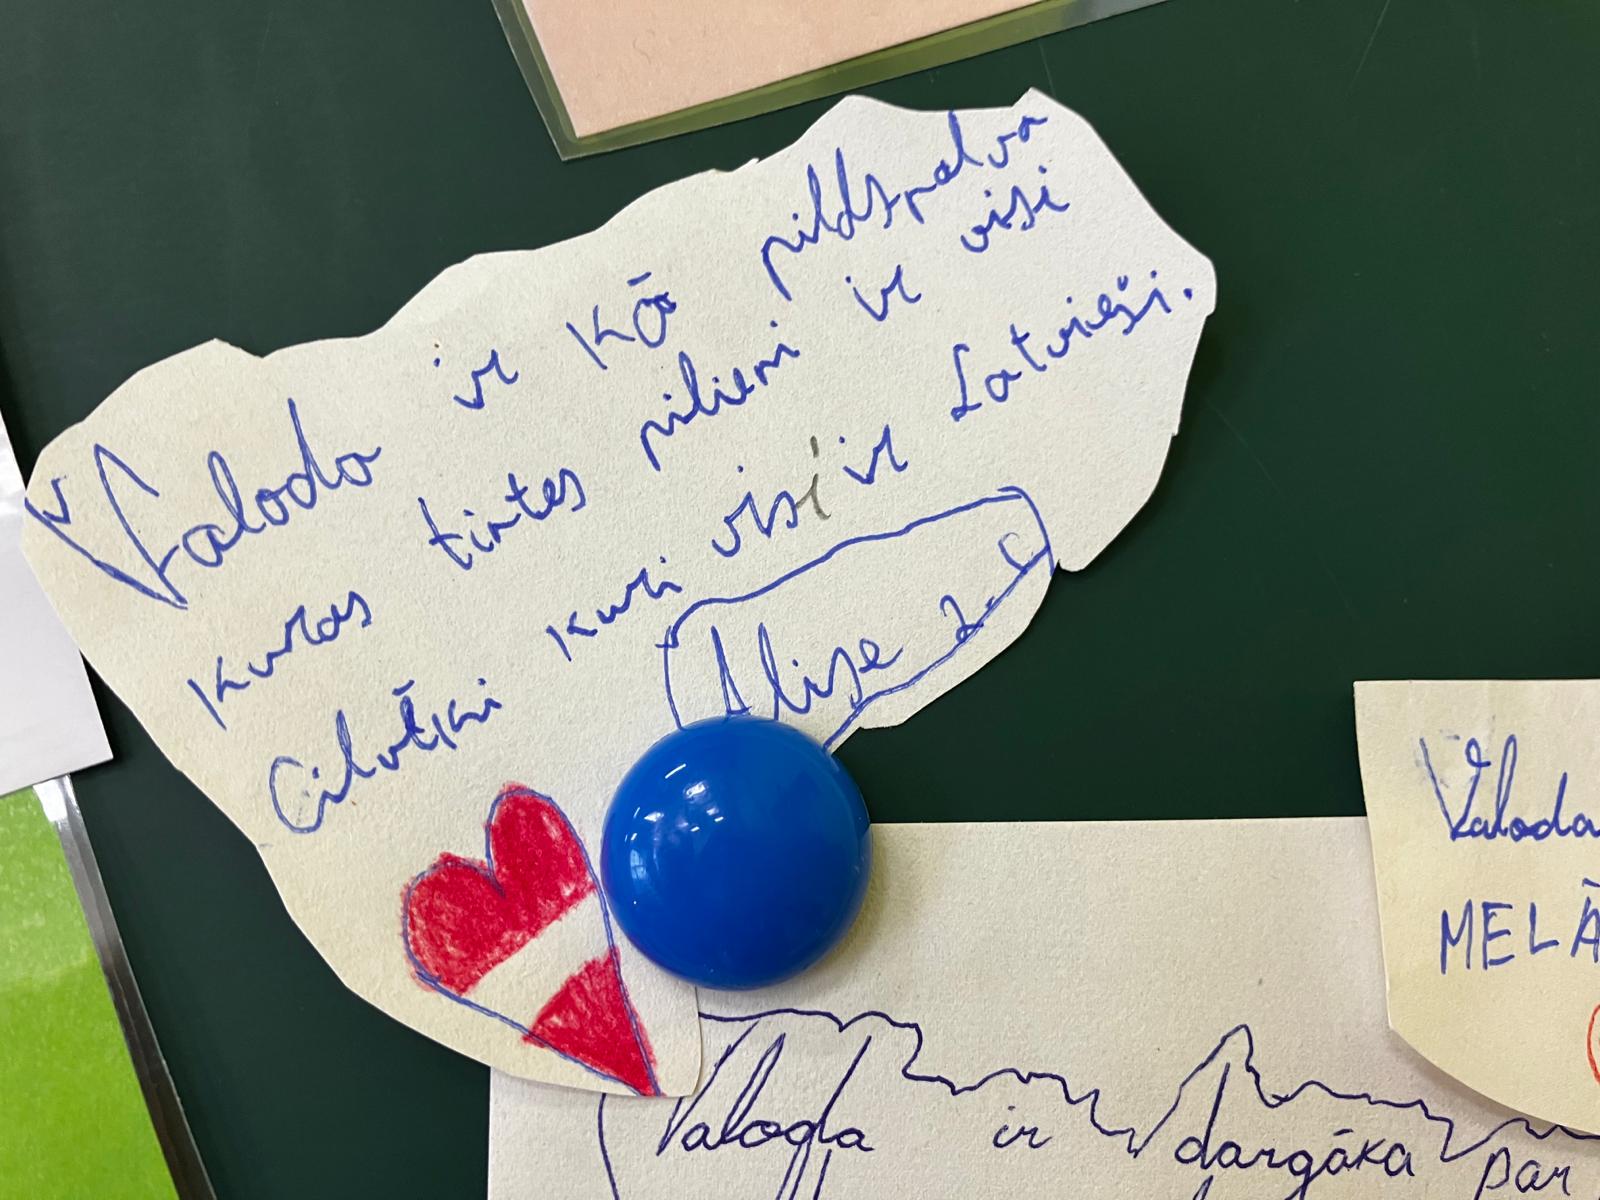 Valoda ir kā pildspalva
kuras tintes pilieni ir visi
Cilvēki kuri visi ir Latvieši.
Alise 2. c
Valoda
MELĀ
Valoda ir dargāka par